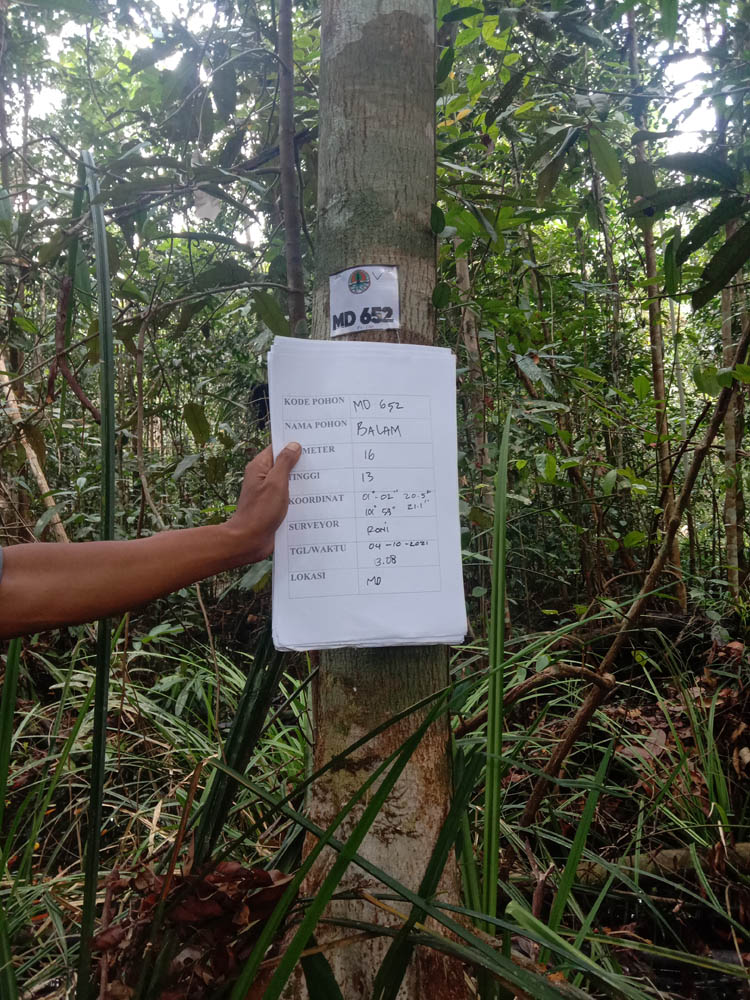 MD 652
KODE POHON MD 652
NAMA POHON BALAM
METER 16
TINGGI 13
KOORDINAT 01°-02'' 20.5''
101° 59'' 21.1''
SURVEYOR RONI
TGL/WAKTU 04-10-2021
3:08
LOKASI MD